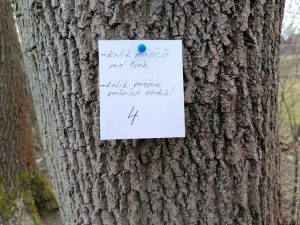 - kolik měsíců
má 1 rok
- kolik máme
ročních období
4